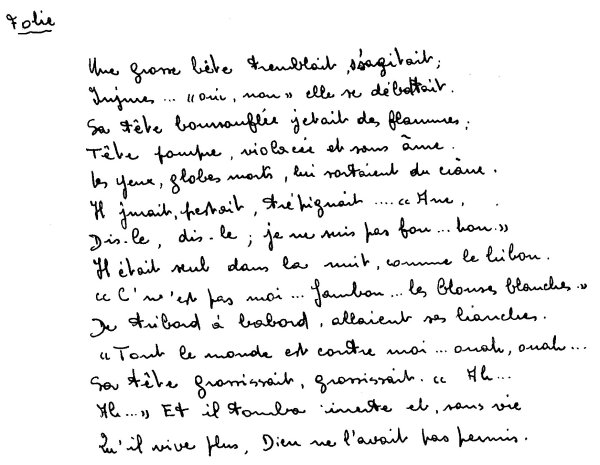 Folie
Une grosse bête tremblait, s'agitait;
Injures ... "oui, non" elle se débattait.
Sa tête boursouflée jetait des flammes;
Tête pourpre, violacée et sans âme.
Les yeux, globes morts, lui sortaient du crâne.
Il jurait, pestait, trépignait .... "Ane,
Dis-le, dis-le; je ne suis pas fou ... hou."
Il était seul dans la nuit, comme le hibou.
"C'n'est pas moi ... Jambon ... les blouses blanches."
De tribord à babord, allaient ses hanches.
"Tout le monde est contre moi ... ouah, ouah ...
Sa tête grossissait, grossissait. " Ah ...
Ah ..." Et il tomba inerte et, sans vie
Qu'il vive plus, Dieu ne l'avait pas permis.